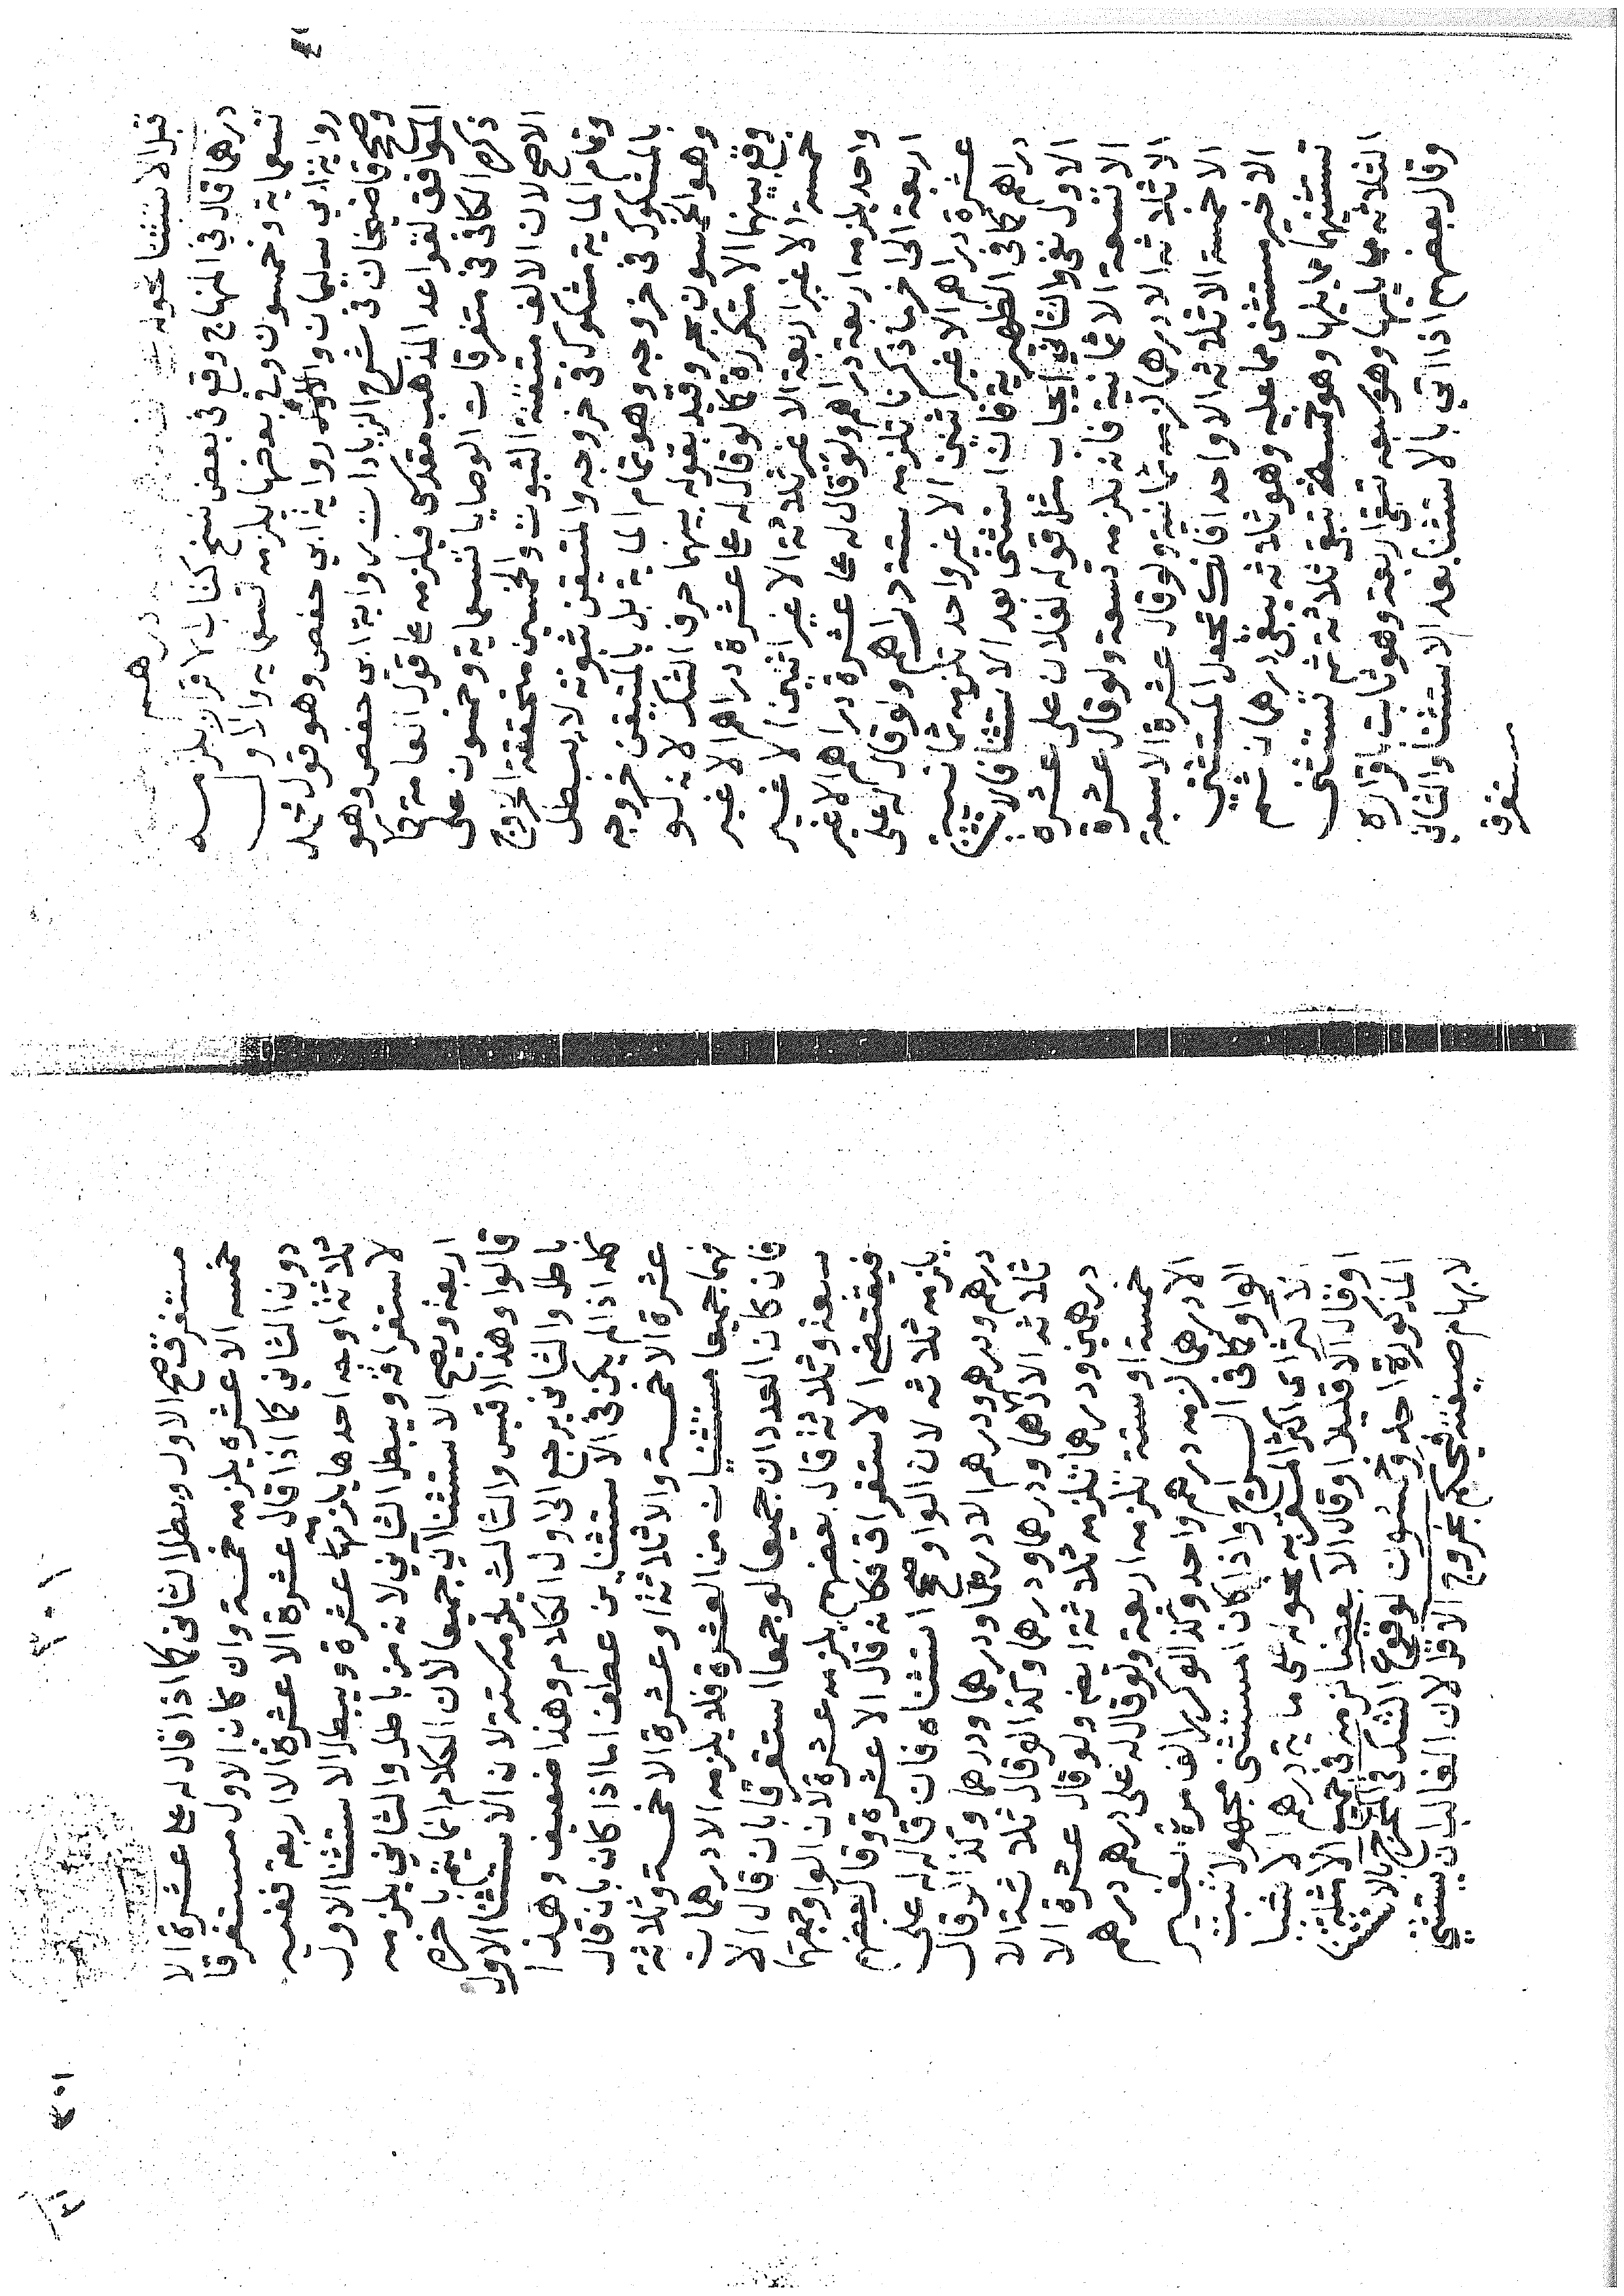 قبل الاستثنا نحو له درهم
درهما قال في المنهاج وقع في بعض نسخ كتاب الاقرار يلزمه
تسعماية وخمسون وفي بعضها يلزمه تسعماية والاول
رواية ابي سليمان رواية ابي حفص وهو قول
وصحح قاضيخان في شرح الزيادات رواية ابي حفص وهو
الموافق لقواعد المذهب فيلزمه على قول العامة كما
ذكره الكافي في متفرقات الوصايا تسعماية وخمسون على
الاصح لان الالف متيقنة الثبوت والخمسين متحققة الخروج
وتمام الماية مشكوك في خروجه والمتيقن ثبوته لا يبطل
بالمشكوك في خروجه وهو تمام الماية بل بالمتيقن خروجه
وهو الخمسون بحر وقيد بقوله بينهما حرف الشك لانه لو
وقع بينهما الا متكررة كما لو قال له على عشرة دراهم الا غير
خمسة الا غير اربعة الا غير ثلاثة الا غير اثنين الا غير
واحد يلزمه اربعة دراهم ولو قال له على عشرة دراهم الا غير
اربعة الى اخر ما ذكرنا تلزمه ستة دراهم ولو قال له على
عشرة دراهم الا غير اثنين الا غير واحد تلزمه ثمانية
دراهم كما في الظهيرية فان استثنى بعد الاستثنا فالاستثنا
الاول نفي والثاني ايجاب مثل قوله لفلان على عشرة
الا تسعة الا ثمانية فانه تلزمه تسعة ولو قال عشرة
الا ثلاثة الا درهما لزمه ثمانية ولو قال عشرة الا سبعة
الا خمسة الا ثلاثة الا واحدا فانك تجعل المستثنى
الاخير مستثنى مما عليه وهو ثلاثة يبقى درهمان ثم
تستثنيهما مما يليها وهو تبقى ثلاثة ثم تستثنى
الثلاثة مما يليها وهو سبعة تبقى اربعة وهو ثابت اقراره
وقال بعضهم اذا اتي بالاستثنا بعد الاستثنا والثاني
مستغرق
مستغرق صح الاول وبطل الثاني كما اذا قال له على عشرة الا
خمسه الا عشره يلزمه خمسة وان كان الاول مستغرقا
دون الثاني كما اذا قال عشرة الا عشرة الا اربعة ففيه
ثلاثة اوجه احدها يلزمه عشرة ويبطل الاستثنا الاول
لاستغراقه ويبطل الثاني لانه من باطل والثاني يلزمه
اربعة ويصح الاستثنائين جميعا لان الكلام انما يتم باخره
قالوا وهذا اقيس والثالث يلزمه ستة لان الاستثنا الاول
باطل والثاني يرجع الى اول الكلام وهذا ضعيف وهذا
كله اذا لم يكن في الاستثنايين عطف اما اذا كان بان قال
عشرة الا خمسة والا ثلاثة او عشرة الا خمسة وثلاثة
فهما جميعا مستثنيان من العشرة فلا يلزمه الا درهمان
فان كان العددان جميعا لو جمعا استغرقا بان قال الا
سبعة وثلاثة قال بعضهم يلزمه عشرة لان الواو جمعتهما
فيقتضي الاستغراق فكانه قال الا عشرة وقال بعضهم
يلزمه ثلاثة لان الواو صح استثناه فان قال له على
درهم ودرهم ودرهم الا درهما ودرهما ودرهما وكذا لو قال
ثلاثة الا درهما ودرهما ودرهما وكذا لو قال ثلاثة الا
درهمين ودرهما تلزمه ثلاثة ايضا ولو قال عشرة الا
خمسة او ستة تلزمه اربعة ولو قال له على درهم درهم
الا درهما لزمه درهم واحد وكذا لو كرر الف مرة بغير
الواو كما في السراج واذا كان المستثنى مجهولا تثبت
الاكثر اي اكثر المقر به نحو له على ماية درهم الا شيا
او قال الا قليلا او قال الا بعضا لزمه في الامثلة
المذكورة احد وخمسون لوقوع الشك في المخرج بالاستثنا
لابهام صيغته فيحكم بخروج الاقل لان الغالب ان يستثنى